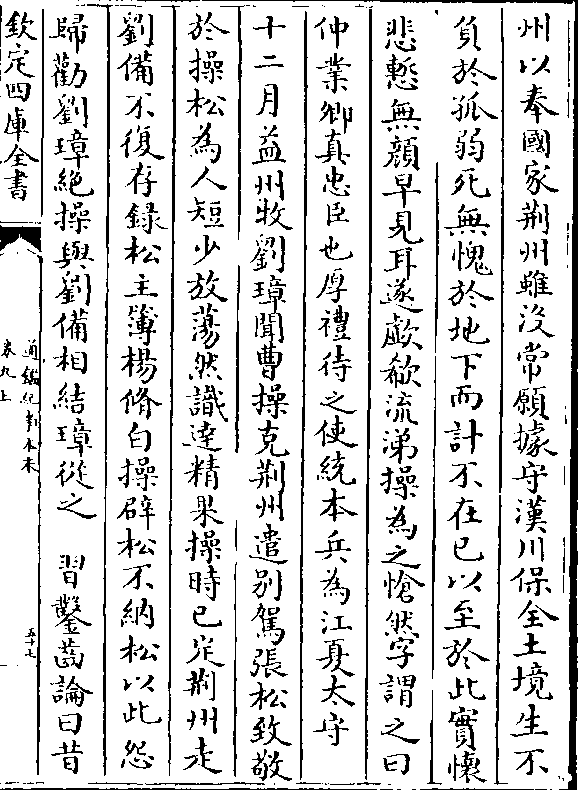 州以奉國家荆州雖没常願據守漢川保全土境生不
負於孤弱死無愧於地下而計不在已以至於此實懷
悲慙無顔早見耳遂歔欷流涕操為之愴然字謂之曰
仲業卿真忠臣也厚禮待之使統本兵為江夏太守
十二月益州牧劉璋聞曹操克荆州遣别駕張松致敬
於操松為人短少放蕩然識達精果操時已定荆州走
劉備不復存録松主簿楊脩白操辟松不納松以此怨
歸勸劉璋絶操與劉備相結璋從之　習鑿齒論曰昔
欽定四庫全書
通鑑紀事本末
卷九上
五十七